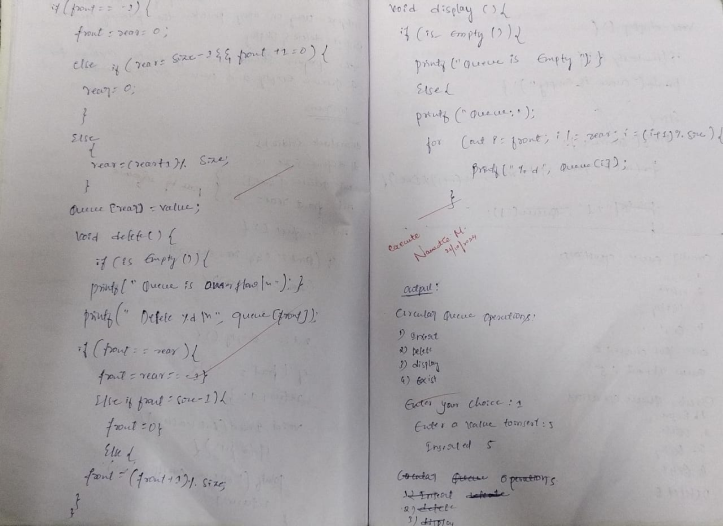 if (front == -1) {
front = rear = 0;
else if (rear = size-1 && front != 0) {
rear = 0;
}
Else
{
rear = (rear+1) % size;
}
Queue [rear] = value;
Void delete () {
if (Is Empty ()) {
printf (" Queue is \n"); }
printf (" Delete %d \n", queue [front]);
if (front == rear) {
front = rear = -1}
Else if front = size-1) {
front = 0}
Else {
front = (front+1) % size;
}
}
Void display () {
if (is empty ()) {
printf ("Queue is Empty "); }
Else {
printf ("Queue: ");
for (int i = front; i != rear; i = (i+1) % size) {
Printf (" %d", Queue [i]);
}
execute
Namitha M.
output:
Circular Queue Operations:
1) Insert
2) Delete
3) display
4) Exist
Enter your choice : 1
Enter a value to insert : 5
Inserted 5
Circular Queue Operations
1) Insert
2) delete
3) display